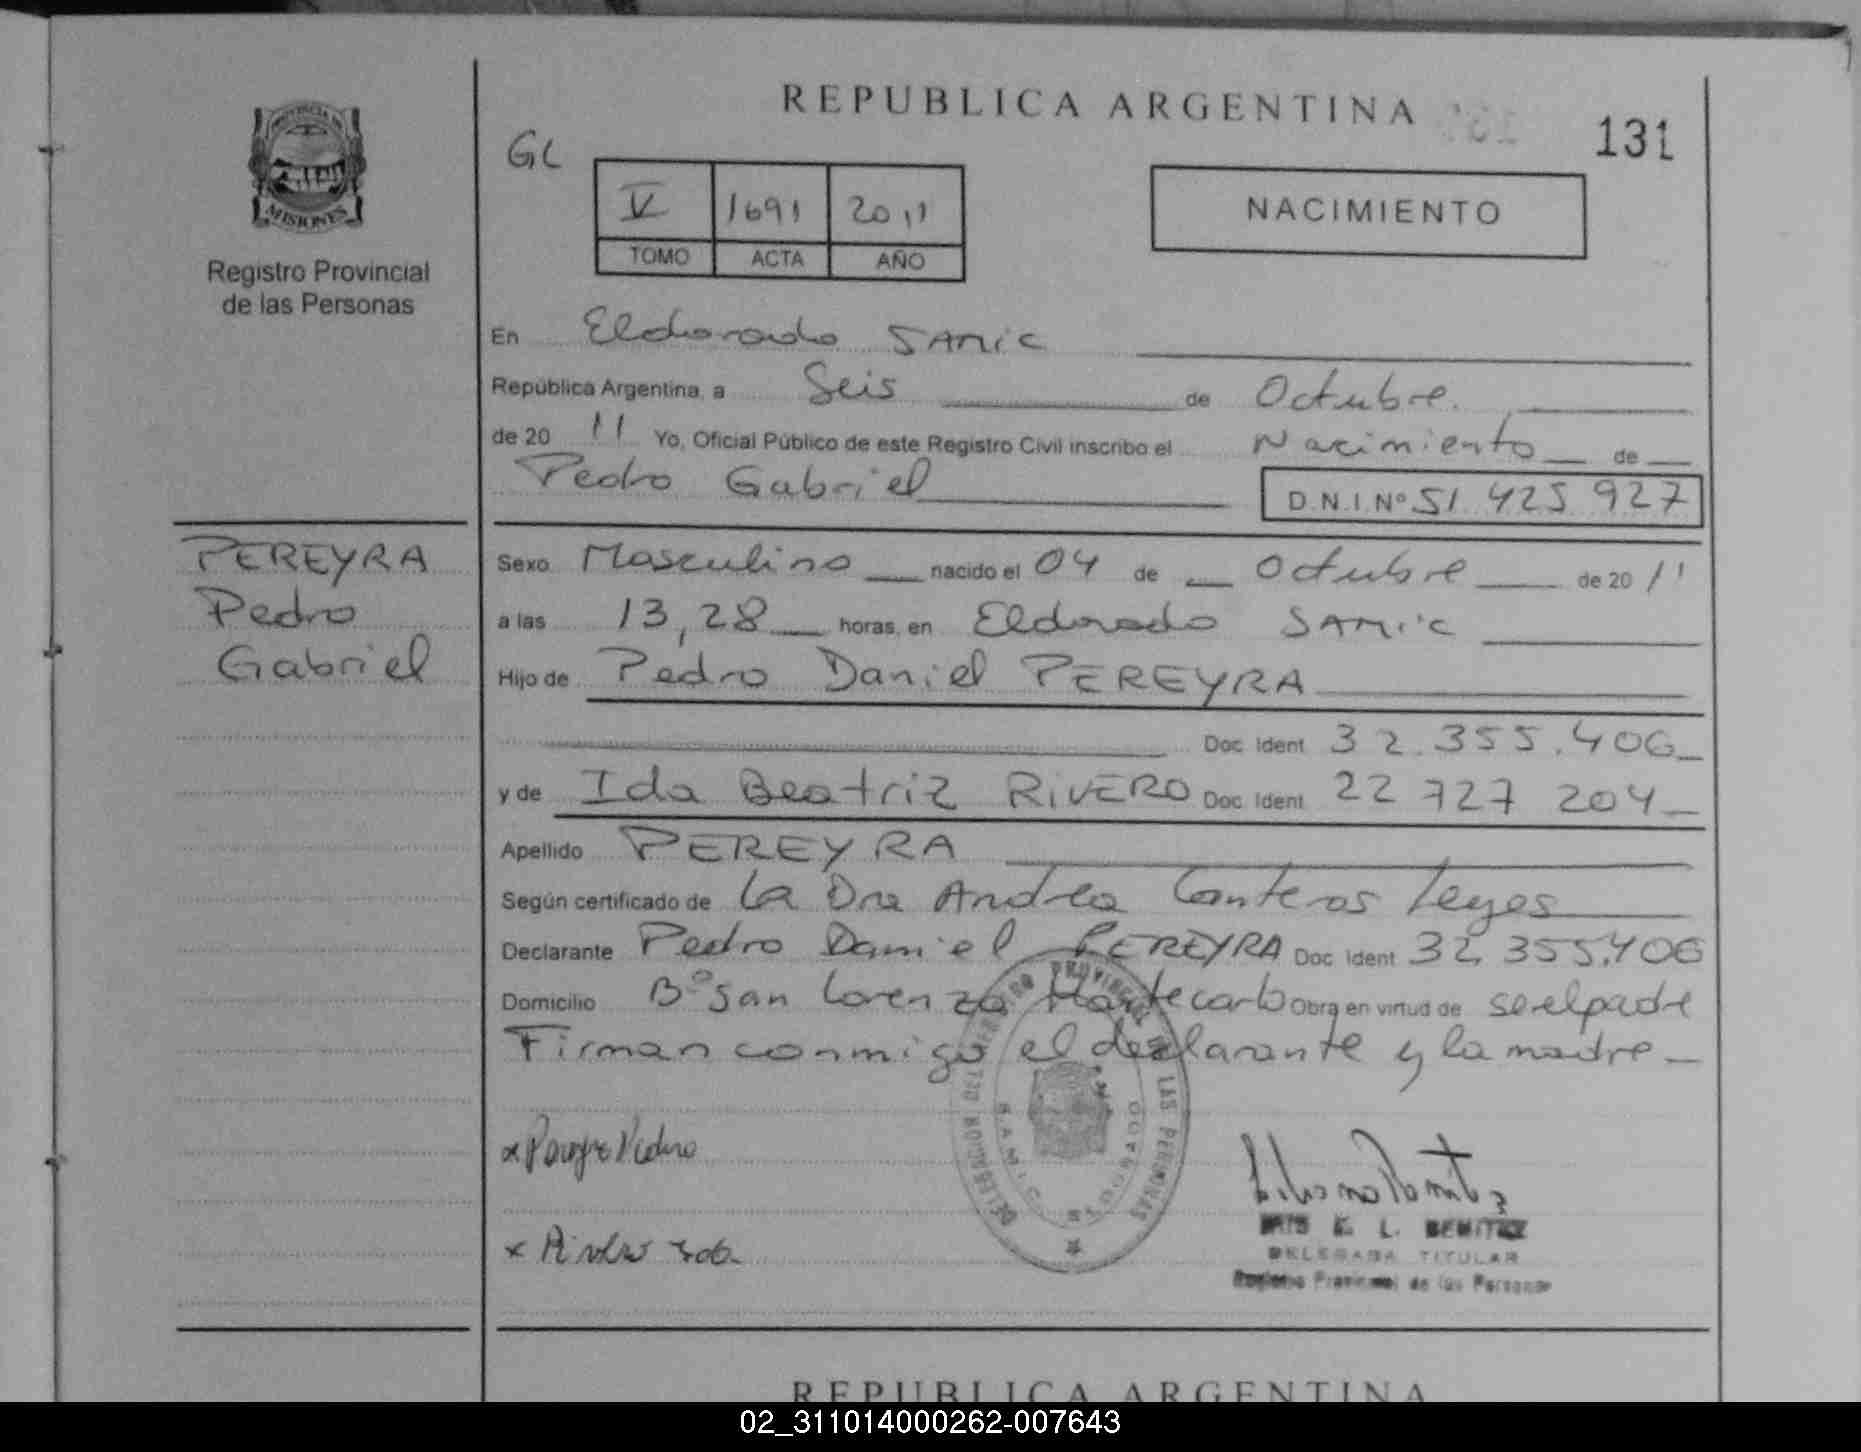 REPUBLICA ARGENTINA
131
GL
V 1691 2011
TOMO ACTA AÑO
NACIMIENTO
PROVINCIA DE
MISIONES
Registro Provincial
de las Personas
En Eldorado SAMIC
República Argentina, a Seis de Octubre.
de 20 11 Yo, Oficial Público de este Registro Civil inscribo el Nacimiento de
Pedro Gabriel D.N.I.Nº 51.425.927
PEREYRA
Pedro
Gabriel
Sexo Masculino nacido el 04 de Octubre de 20 11
a las 13,28 horas, en Eldorado SAMIC
Hijo de Pedro Daniel PEREYRA
Doc. Ident 32.355.406
y de Ida Beatriz RIVERO Doc. Ident. 22 727 204
Apellido PEREYRA
Según certificado de La Dra Andrea Canteros Leyes
Declarante Pedro Daniel PEREYRA Doc. Ident 32.355.406
Domicilio Bº San Lorenzo Montecarlo Obra en virtud de ser el padre
Firman conmigo el declarante y la madre
REGISTRO PROVINCIAL DE LAS PERSONAS
DELEGACION
S.A.M.I.C.
ELDORADO
x Pedro
x Ida
L. BENITEZ
DELEGADA TITULAR
Registro Provincial de las Personas
REPUBLICA ARGENTINA
02_311014000262-007643